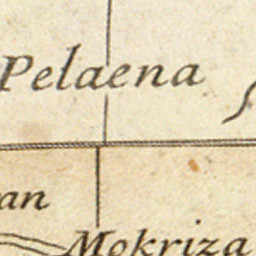 Pelaena
an
Mokriza